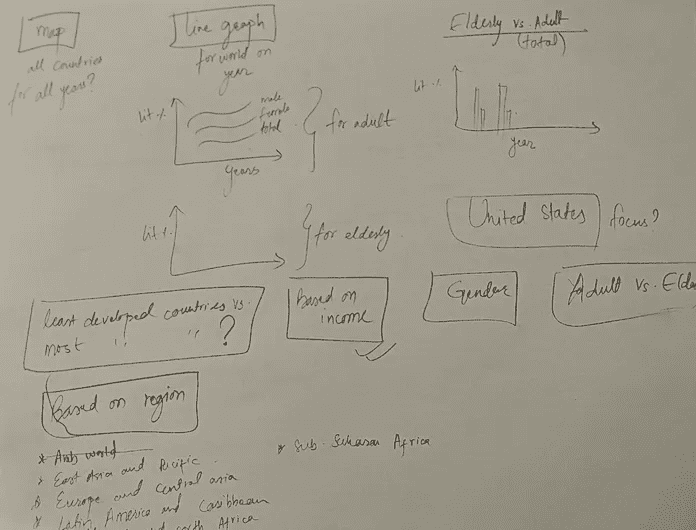 map
all countries
for all years?
line graph
for world on
year
lit %
male
female
total
years
for adult
lit %
for elderly
Elderly vs. Adult
(total)
lit %
year
United States
focus?
least developed countries vs.
most " " ?
Based on
income
Gender
Adult vs. Elde
Based on region
* Arab world
* East Asia and Pacific
* Europe and central asia
* Latin America and Caribbean
north Africa
* Sub-Saharan Africa